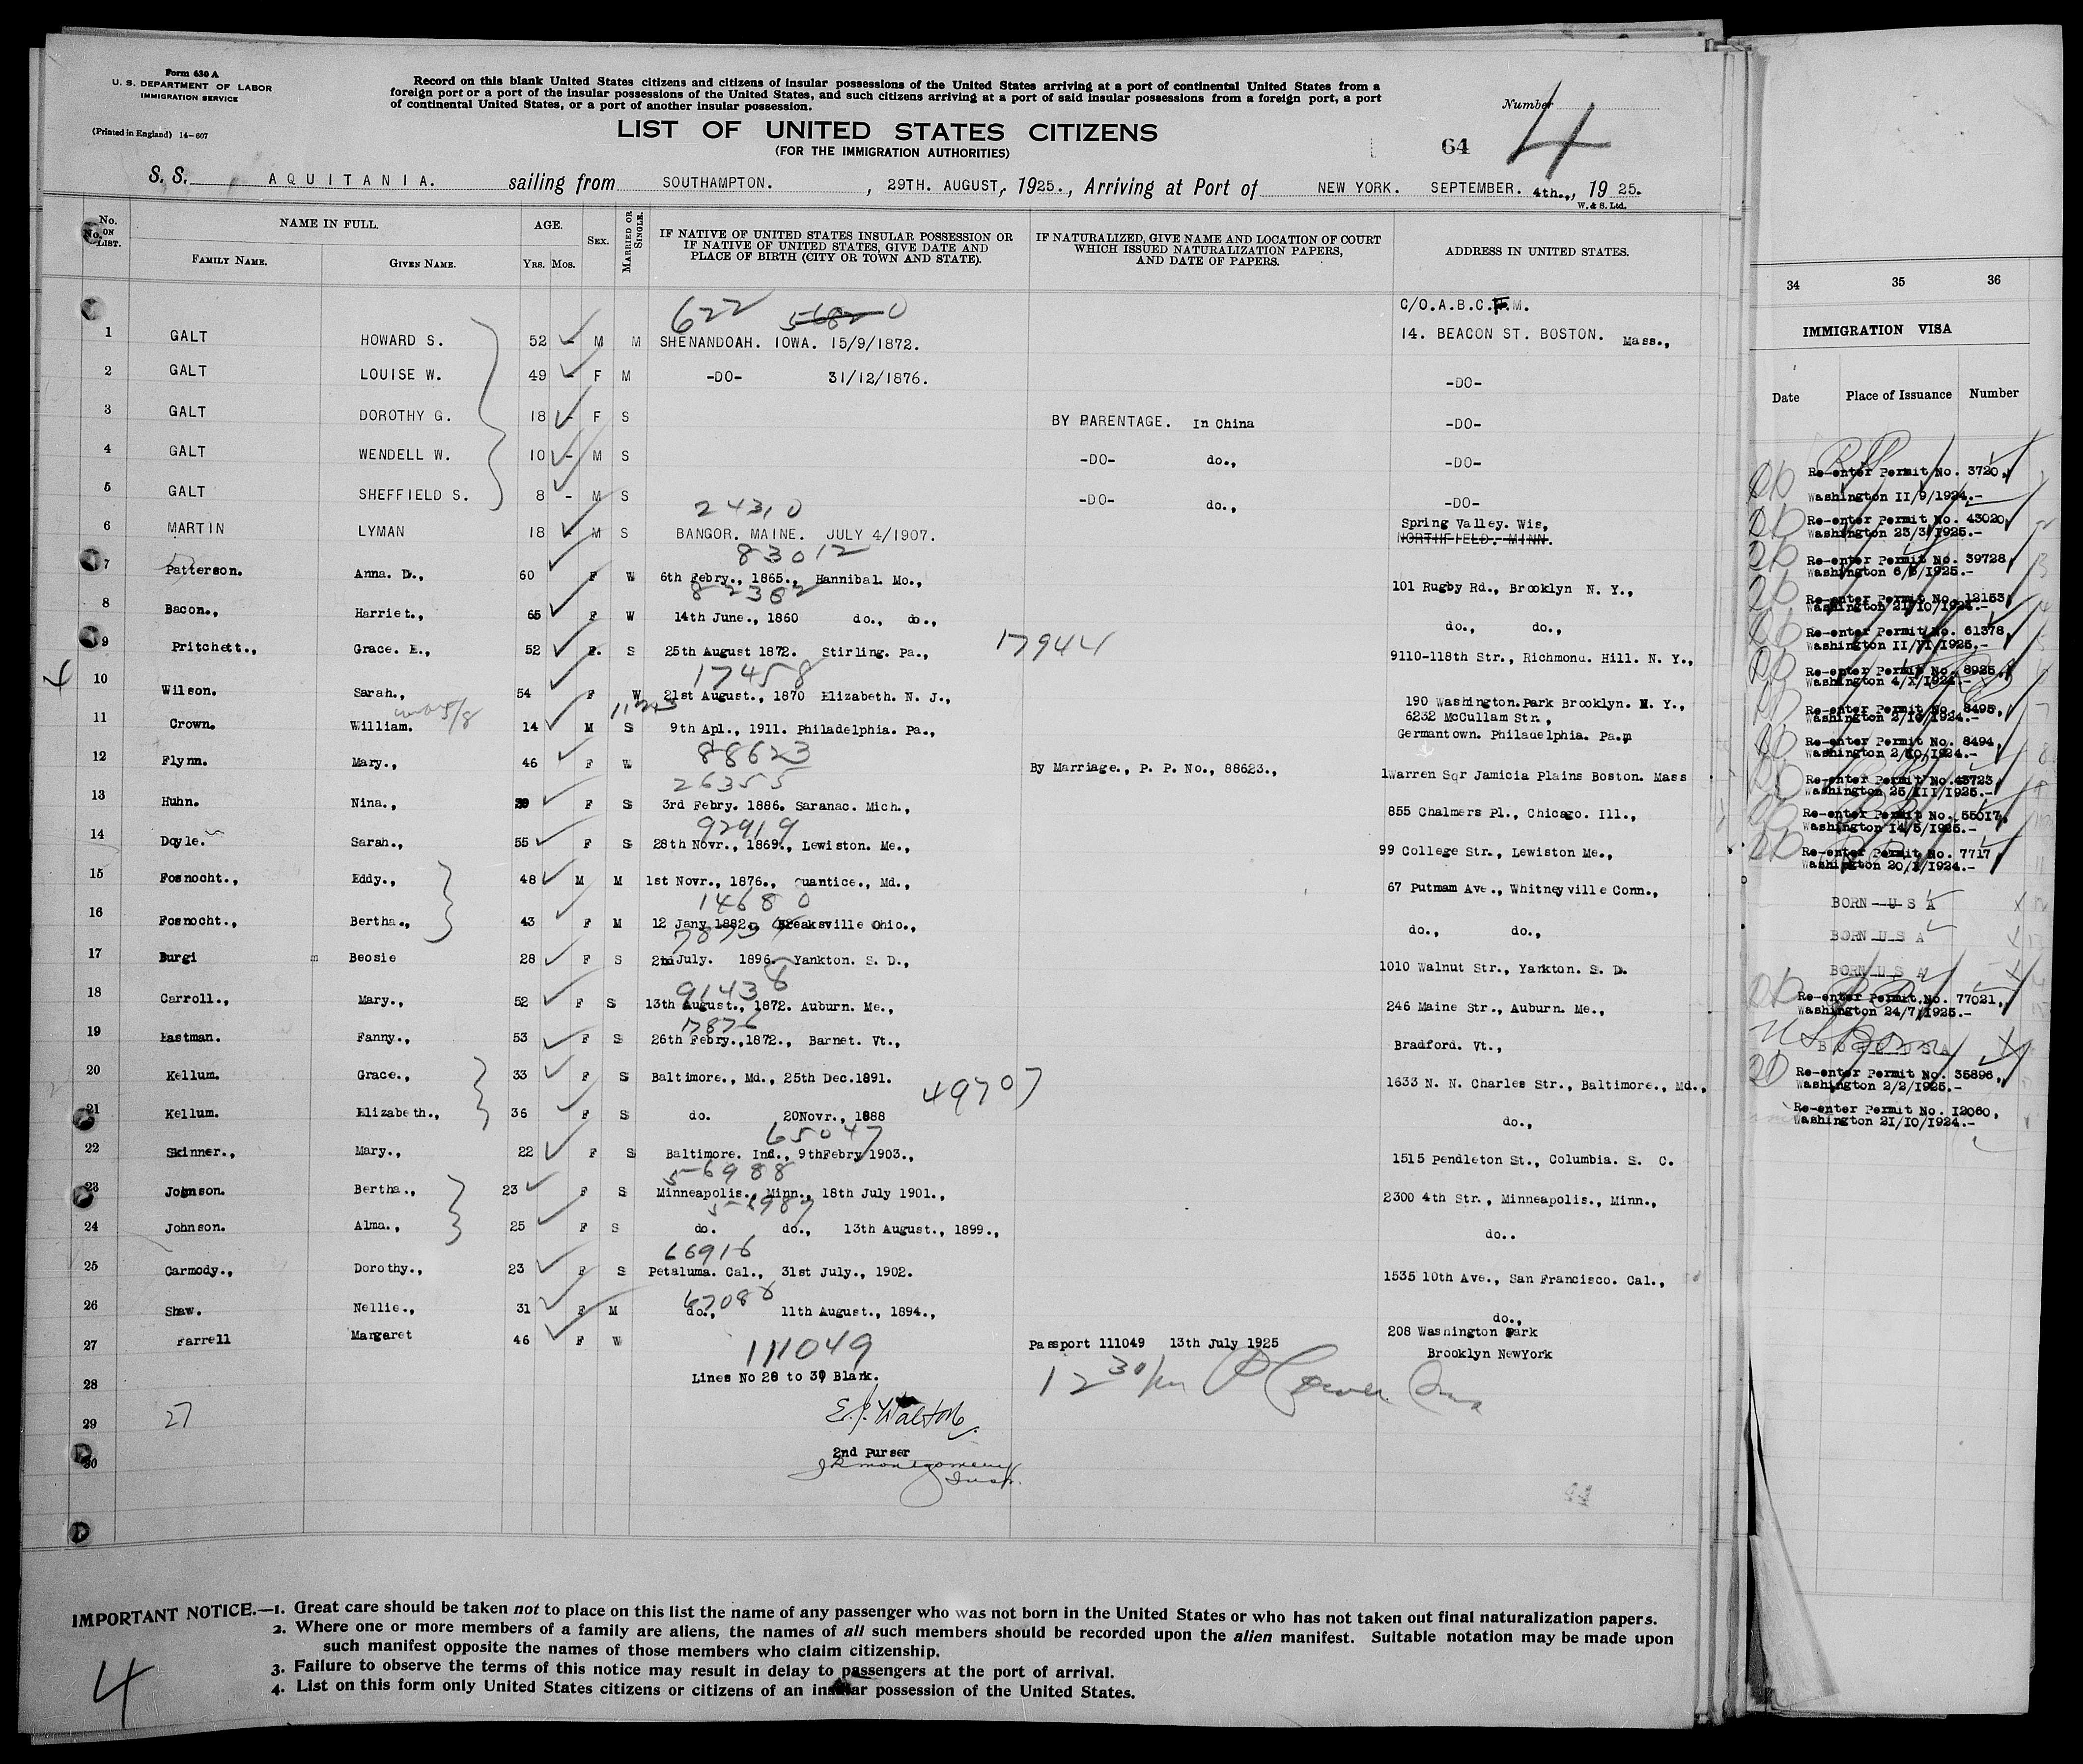 Form 630 A
U. S. DEPARTMENT OF LABOR
IMMIGRATION SERVICE
(Printed in England) 14-607
Record on this blank United States citizens and citizens of insular possessions of the United States arriving at a port of continental United States from a
foreign port or a port of the insular possessions of the United States, and such citizens arriving at a port of said insular possessions from a foreign port, a port
of continental United States, or a port of another insular possession.
Number
LIST OF UNITED STATES CITIZENS
(FOR THE IMMIGRATION AUTHORITIES)
64 4
S. S. AQUITANIA. sailing from SOUTHAMPTON. , 29TH. AUGUST, 1925., Arriving at Port of NEW YORK. SEPTEMBER. 4th.,, 19 25.
W. & S. Ltd.
No. ON LIST. NAME IN FULL. FAMILY NAME. GIVEN NAME. AGE. YRS. MOS. SEX. MARRIED OR SINGLE. IF NATIVE OF UNITED STATES INSULAR POSSESSION OR IF NATIVE OF UNITED STATES, GIVE DATE AND PLACE OF BIRTH (CITY OR TOWN AND STATE). IF NATURALIZED, GIVE NAME AND LOCATION OF COURT WHICH ISSUED NATURALIZATION PAPERS, AND DATE OF PAPERS. ADDRESS IN UNITED STATES.
622 C/O.A.B.C.F.M.
1 GALT HOWARD S. 52 - M M SHENANDOAH. IOWA. 15/9/1872. 14. BEACON ST. BOSTON. Mass.,
2 GALT LOUISE W. 49 - F M -DO- 31/12/1876. -DO-
3 GALT DOROTHY G. 18 - F S BY PARENTAGE. In China -DO-
4 GALT WENDELL W. 10 - M S -DO- do., -DO-
5 GALT SHEFFIELD S. 8 - M S -DO- do., -DO-
24310
6 MARTIN LYMAN 18 - M S BANGOR. MAINE. JULY 4/1907. Spring Valley. Wis, NORTHFIELD. MINN.
83012
7 Patterson. Anna. D., 60 F W 6th Febry., 1865., Hannibal. Mo., 101 Rugby Rd., Brooklyn N. Y.,
82362
8 Bacon., Harriet., 65 F W 14th June., 1860 do., do., do., do.,
9 Pritchett., Grace. E., 52 F. S 25th August 1872. Stirling. Pa., 17944 9110-118th Str., Richmond. Hill. N. Y.,
17458
10 Wilson. Sarah., 54 F W 21st August., 1870 Elizabeth. N. J., 190 Washington.Park Brooklyn. N. Y.,
11 Crown. William. 14 M S 9th Apl., 1911. Philadelphia. Pa., 6232 McCullam Str., Germantown. Philadelphia. Pa.
88623
12 Flynn. Mary., 46 F W By Marriage., P. P. No., 88623., 1Warren Sqr Jamicia Plains Boston. Mass
26355
13 Huhn. Nina., 39 F S 3rd Febry. 1886. Saranac. Mich., 855 Chalmers Pl., Chicago. Ill.,
92919
14 Doyle. Sarah., 55 F S 28th Novr., 1869., Lewiston. Me., 99 College Str., Lewiston Me.,
15 Fosnocht., Eddy., 48 M M 1st Novr., 1876., Quantice., Md., 67 Putnam Ave., Whitneyville Conn.,
14680
16 Fosnocht., Bertha., 43 F M 12 Jany 1882. Breaksville Ohio., do., do.,
17 Burgi Beosie 28 F S 2nd July. 1896. Yankton. S. D., 1010 Walnut Str., Yankton. S. D.
91438
18 Carroll., Mary., 52 F S 13th August., 1872. Auburn. Me., 246 Maine Str., Auburn. Me.,
19 Eastman. Fanny., 53 F S 26th Febry.,1872., Barnet. Vt., Bradford. Vt.,
20 Kellum. Grace., 33 F S Baltimore., Md., 25th Dec.1891. 1633 N. N. Charles Str., Baltimore., Md.,
49707
21 Kellum. Elizabeth., 36 F S do. 20Novr., 1888 do.,
65047
22 Skinner., Mary., 22 F S Baltimore. Ind., 9thFebry 1903., 1515 Pendleton St., Columbia. S. C.
56988
23 Johnson. Bertha., 23 F S Minneapolis., Minn., 18th July 1901., 2300 4th Str., Minneapolis., Minn.,
56987
24 Johnson. Alma., 25 F S do. do., 13th August., 1899., do..
66916
25 Carmody., Dorothy., 23 F S Petaluma. Cal., 31st July., 1902. 1535 10th Ave., San Francisco. Cal.,
26 Shaw. Nellie., 31 F M do., 11th August., 1894., do.,
27 Farrell Margaret 46 F W 111049 Passport 111049 13th July 1925 208 Washington Park Brooklyn NewYork
28 Lines No 28 to 30 Blank.
29 27 E. J. Walton.
2nd Purser
30 J R Montgomery
Insp.
44
IMPORTANT NOTICE.—1. Great care should be taken not to place on this list the name of any passenger who was not born in the United States or who has not taken out final naturalization papers.
2. Where one or more members of a family are aliens, the names of all such members should be recorded upon the alien manifest. Suitable notation may be made upon
such manifest opposite the names of those members who claim citizenship.
3. Failure to observe the terms of this notice may result in delay to passengers at the port of arrival.
4. List on this form only United States citizens or citizens of an insular possession of the United States.
4
34 35 36
IMMIGRATION VISA
Date Place of Issuance Number
Re-enter Permit No. 3720,
Washington II/9/1924.-
Re-enter Permit No. 43020,
Washington 23/3/1925.-
Re-enter Permit No. 39728,
Washington 6/3/1925.-
Re-enter Permit No. 12153,
Washington 21/10/1924.-
Re-enter Permit No. 61378,
Washington II/VI/1925.-
Re-enter Permit No. 8925,
Washington 4/X/1924.-
Re-enter Permit No. 8495,
Washington 2/10/1924.-
Re-enter Permit No. 8494,
Washington 2/10/1924.-
Re-enter Permit No.43723
Washington 25/III/1925.-
Re-enter Permit No. 55017,
Washington 14/5/1925.-
Re-enter Permit No. 7717,
Washington 20/X/1924.-
BORN U S A
BORN U S A
BORN U S A
Re-enter Permit No. 77021,
Washington 24/7/1925.-
US Born
BORN USA
Re-enter Permit No. 35896,
Washington 2/2/1925.-
Re-enter Permit No. I2060,
Washington 21/10/1924.-